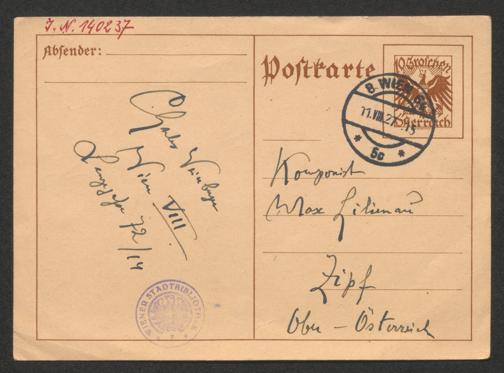 J. N. 140237
Absender:
Postkarte
10 Groschen
Österreich
8. WIEN
11.VIII.27
5c
Wien VIII
72/14
WIENER STADTBIBLIOTHEK
Komponist
Max Lilienau
Zipf
Ober-Österreich